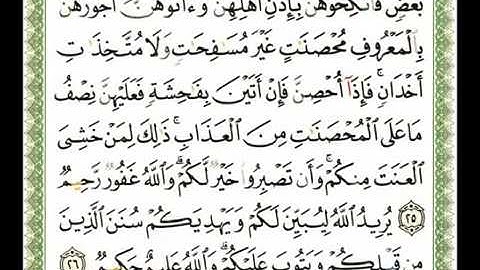 بَعْضٍ فَانكِحُوهُنَّ بِإِذْنِ أَهْلِهِنَّ وَءَاتُوهُنَّ أُجُورَهُنَّ
بِالْمَعْرُوفِ مُحْصَنَٰتٍ غَيْرَ مُسَٰفِحَٰتٍ وَلَا مُتَّخِذَٰتِ
أَخْدَانٍ ۚ فَإِذَا أُحْصِنَّ فَإِنْ أَتَيْنَ بِفَٰحِشَةٍ فَعَلَيْهِنَّ نِصْفُ
مَا عَلَى الْمُحْصَنَٰتِ مِنَ الْعَذَابِ ۚ ذَٰلِكَ لِمَنْ خَشِيَ
الْعَنَتَ مِنكُمْ ۚ وَأَن تَصْبِرُوا خَيْرٌ لَّكُمْ ۗ وَاللَّهُ غَفُورٌ رَّحِيمٌ
٢٥ يُرِيدُ اللَّهُ لِيُبَيِّنَ لَكُمْ وَيَهْدِيَكُمْ سُنَنَ الَّذِينَ
مِن قَبْلِكُمْ وَيَتُوبَ عَلَيْكُمْ ۗ وَاللَّهُ عَلِيمٌ حَكِيمٌ ٢٦